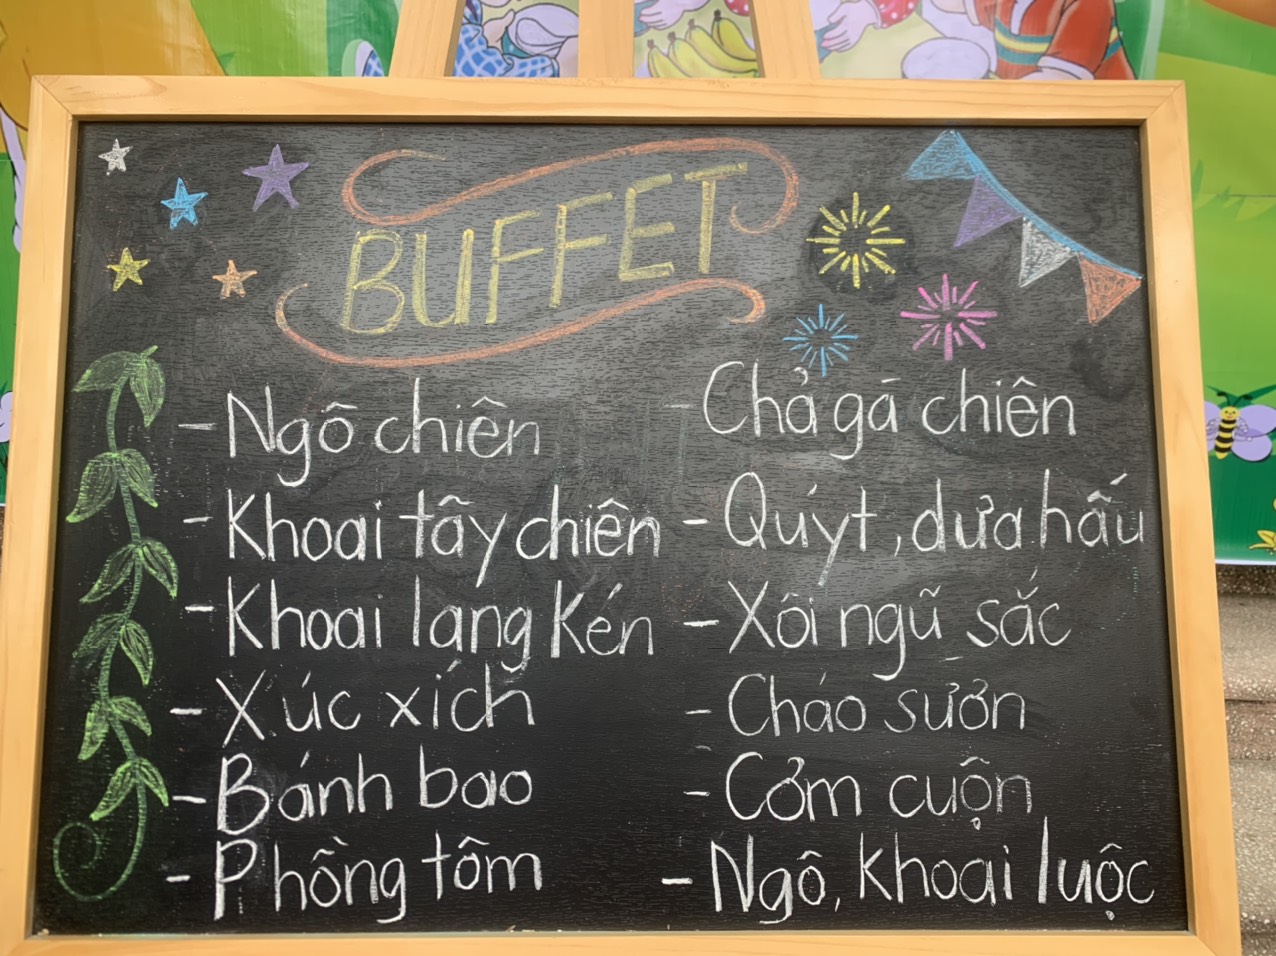 BUFFET
- Ngô chiên
- Khoai tây chiên
- Khoai lang kén
- Xúc xích
- Bánh bao
- Phồng tôm
- Chả gà chiên
- Quýt, dưa hấu
- Xôi ngũ sắc
- Cháo sườn
- Cơm cuộn
- Ngô, khoai luộc